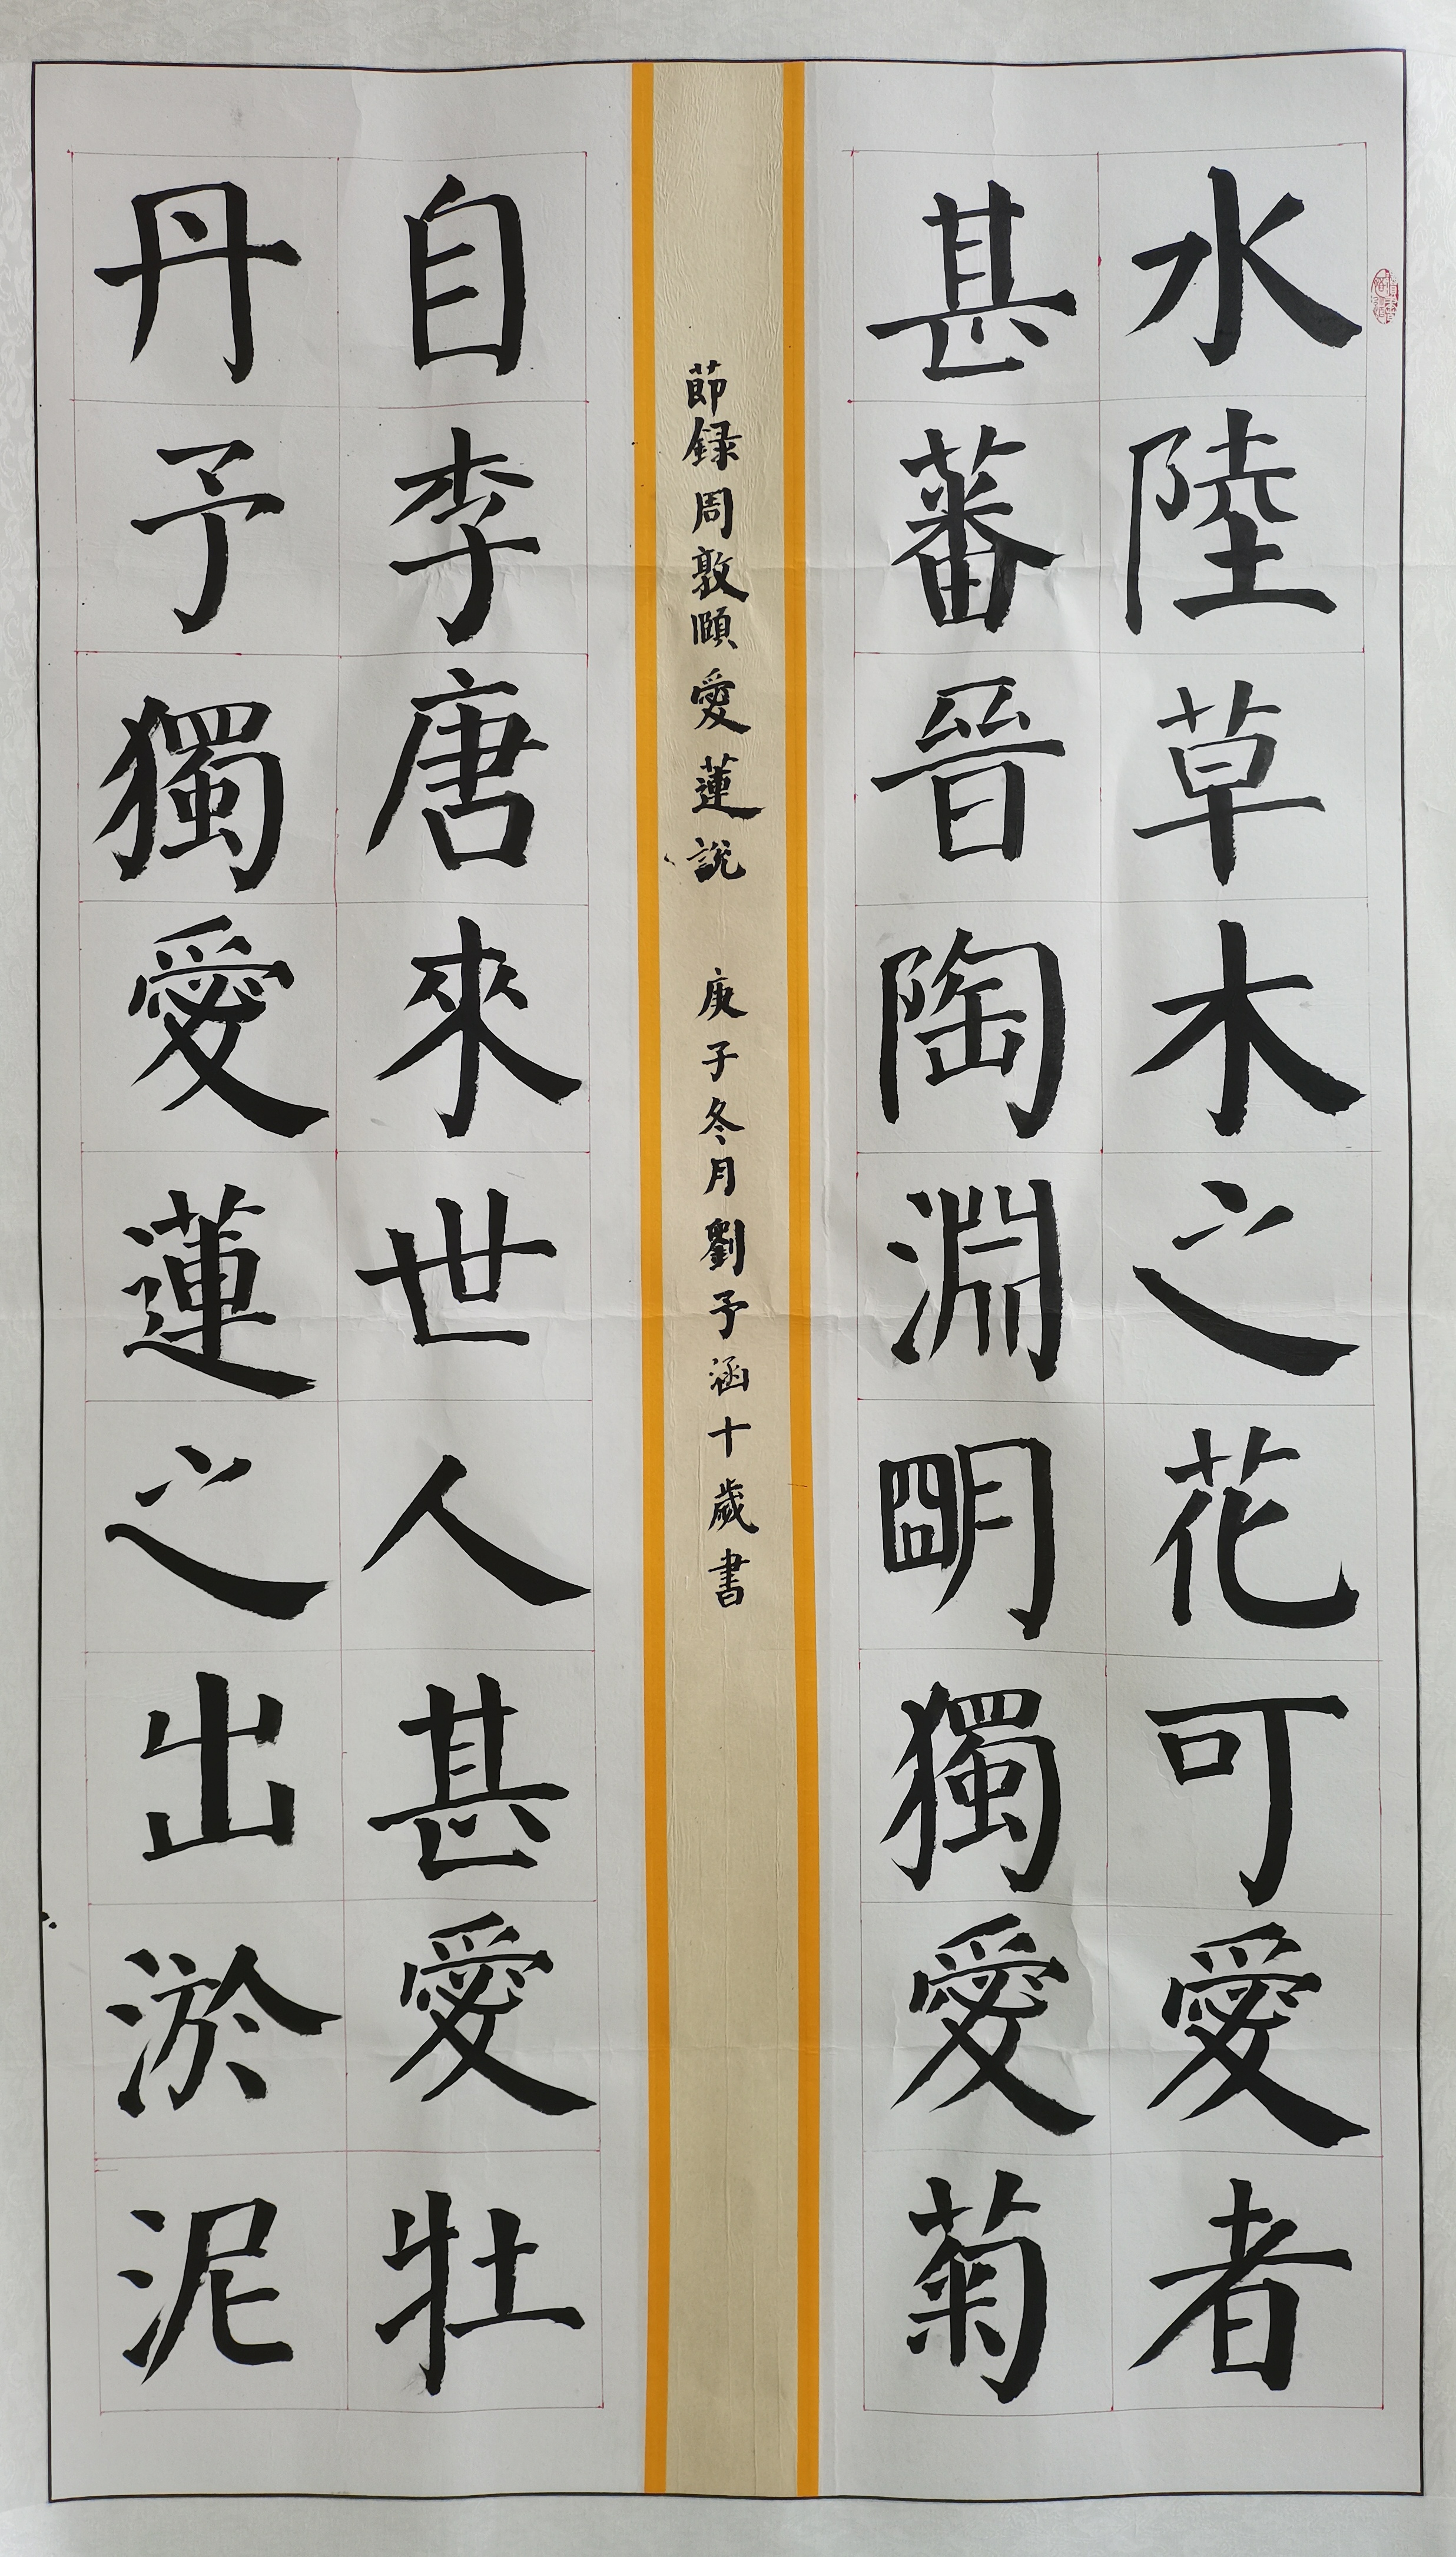 水陸草木之花可愛者
甚蕃晉陶淵明獨愛菊
自李唐來世人甚愛牡
丹予獨愛蓮之出淤泥
節録周敦頤愛蓮説 庚子冬月劉予涵十歲書